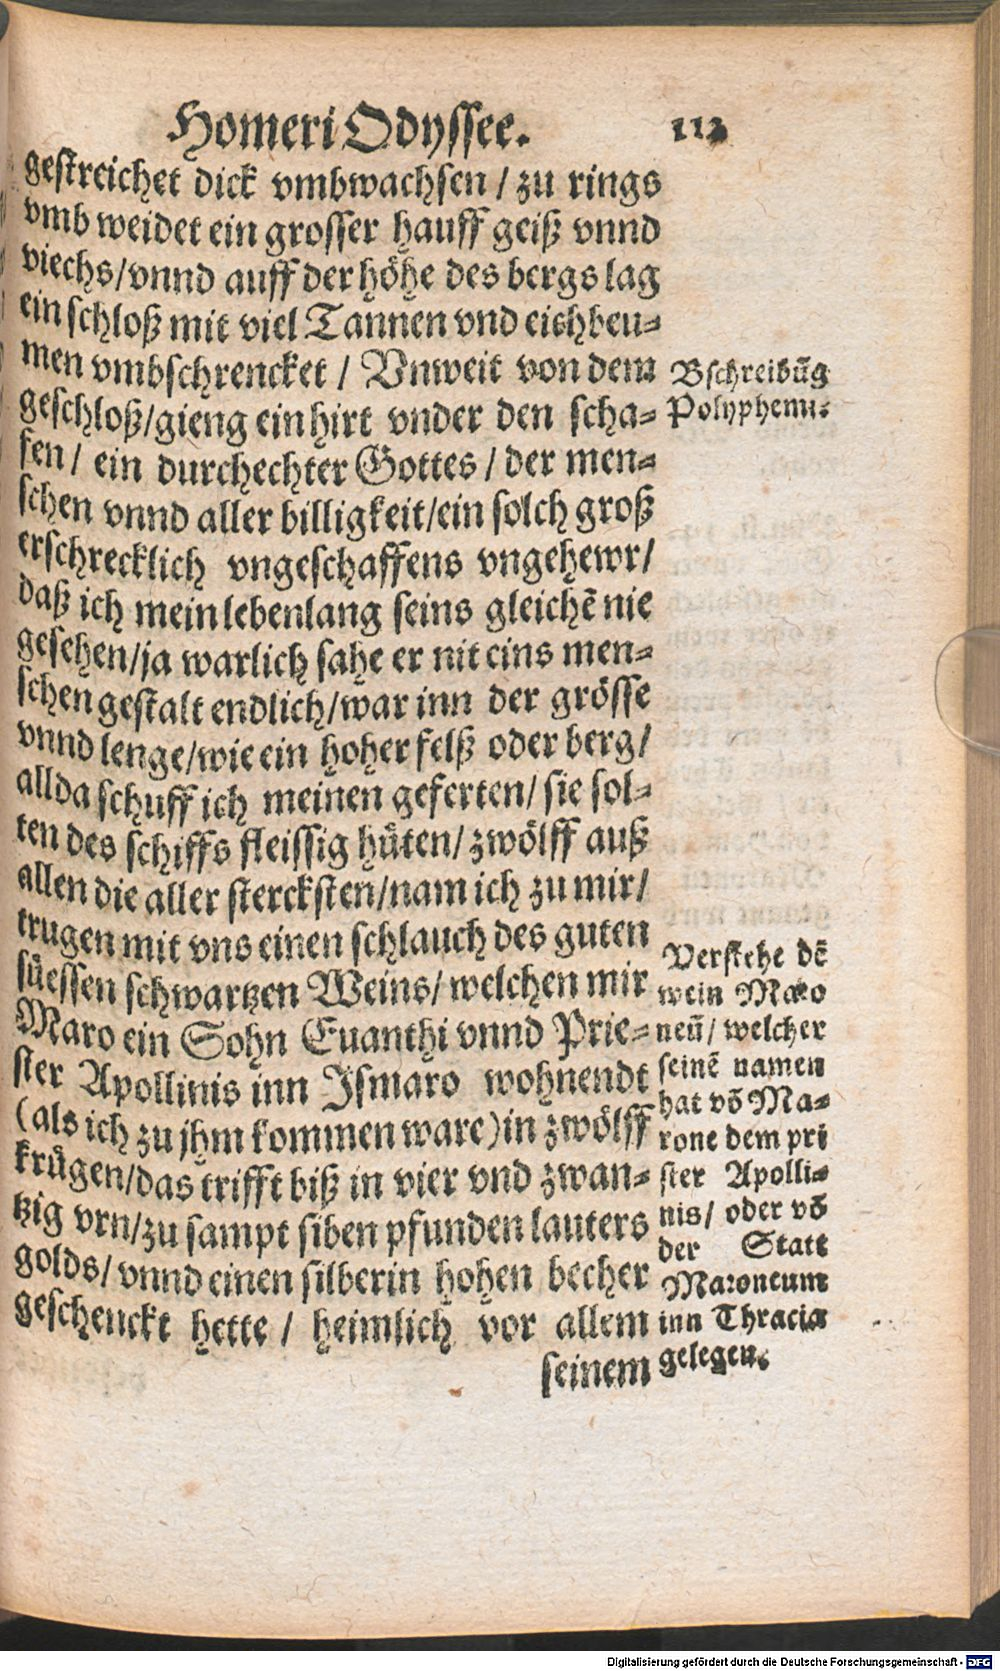 Homeri Odyssee. 113
gestreichet dick vmbwachsen / zu rings
vmb weidet ein grosser hauff geiß vnnd
viechs/vnnd auff der höhe des bergs lag
ein schloß mit viel Tannen vnd eichbeu-
men vmbschrencket / Vnweit von dem
geschloß/gieng ein hirt vnder den scha-
fen / ein durchechter Gottes / der men-
schen vnnd aller billigkeit/ein solch groß
erschrecklich vngeschaffens vngehewr/
daß ich mein lebenlang seins gleichē nie
gesehen/ja warlich sahe er nit eins men-
schen gestalt endlich/war inn der grösse
vnnd lenge/wie ein hoher felß oder berg/
allda schuff ich meinen geferten/ sie sol-
ten des schiffs fleissig hüten/ zwölff auß
allen die aller stercksten/nam ich zu mir/
trugen mit vns einen schlauch des guten
süessen schwartzen Weins/ welchen mir
Maro ein Sohn Euanthi vnnd Prie-
ster Apollinis inn Ismaro wohnendt
(als ich zu jhm kommen ware)in zwölff
krügen/das trifft biß in vier vnd zwan-
tzig vrn/zu sampt siben pfunden lauters
golds/ vnnd einen silberin hohen becher
geschenckt hette / heimlich vor allem
seinem
Bschreibūg
Polyphemi.
Verstehe dē
wein Maro
neū/ welcher
seinē namen
hat vō Ma-
rone dem pri
ster Apolli-
nis/ oder vō
der Statt
Maroneum
inn Thracia
gelegen.
Digitalisierung gefördert durch die Deutsche Forschungsgemeinschaft - DFG